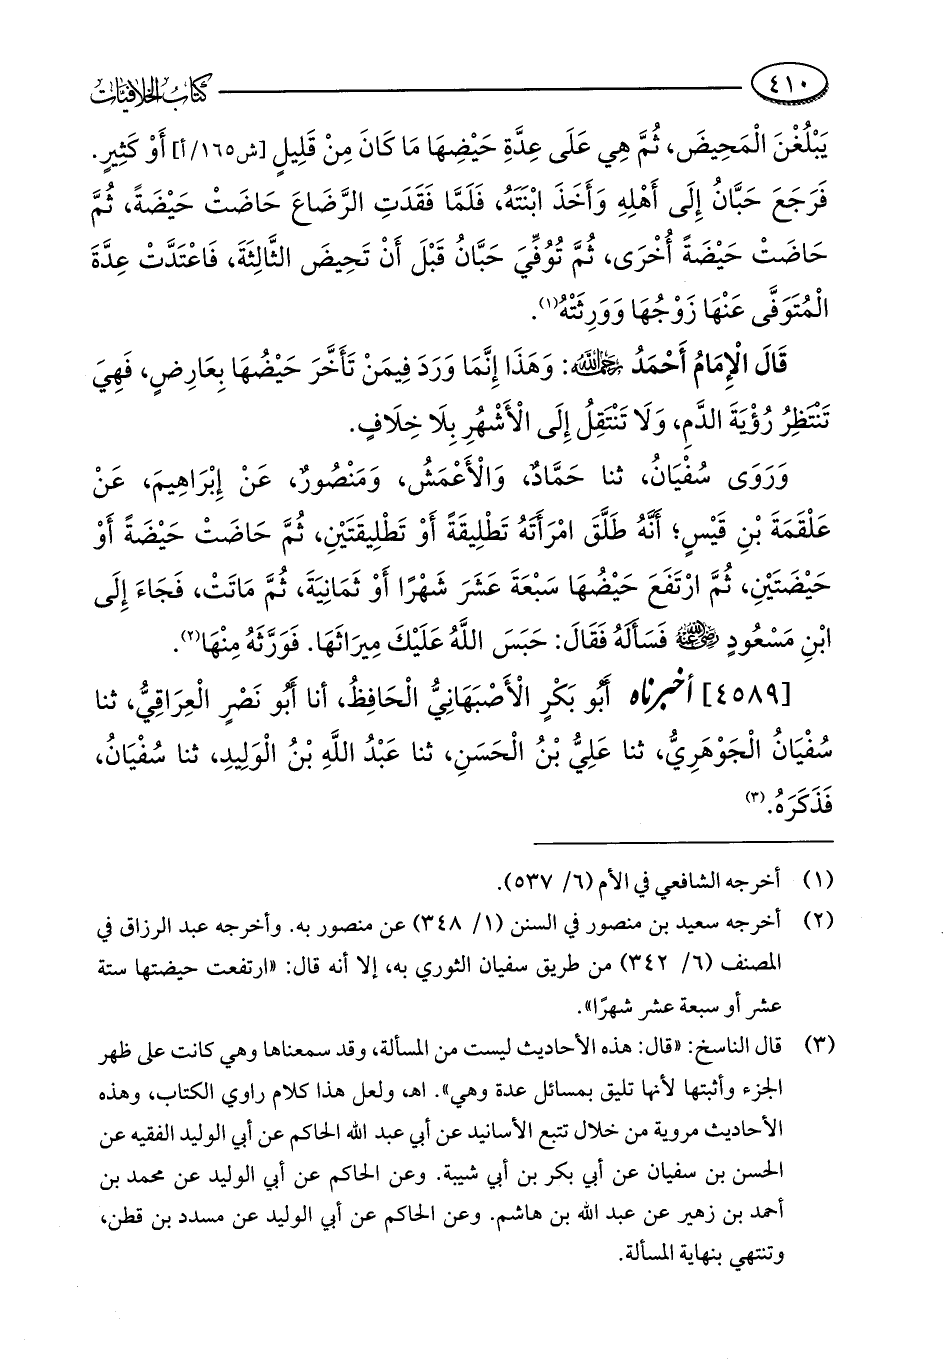 ٤١٠ كتاب الخلافيات
يَبْلُغْنَ الْمَحِيضَ، ثُمَّ هِي عَلَى عِدَّةِ حَيْضِهَا مَا كَانَ مِنْ قَلِيلٍ [ش١٦٥/أ] أَوْ كَثِيرٍ.
فَرَجَعَ حَبَّانُ إِلَى أَهْلِهِ وَأَخَذَ ابْنَتَهُ، فَلَمَّا فَقَدَتِ الرَّضَاعَ حَاضَتْ حَيْضَةً، ثُمَّ
حَاضَتْ حَيْضَةً أُخْرَى، ثُمَّ تُوُفِّيَ حَبَّانُ قَبْلَ أَنْ تَحِيضَ الثَّالِثَةَ، فَاعْتَدَّتْ عِدَّةَ
الْمُتَوَفَّى عَنْهَا زَوْجُهَا وَوَرِثَتْهُ(١).
قَالَ الْإِمَامُ أَحْمَدُ رحمه الله: وَهَذَا إِنَّمَا وَرَدَ فِيمَنْ تَأَخَّرَ حَيْضُهَا بِعَارِضٍ، فَهِيَ
تَنْتَظِرُ رُؤْيَةَ الدَّمِ، وَلَا تَنْتَقِلُ إِلَى الْأَشْهُرِ بِلَا خِلَافٍ.
وَرَوَى سُفْيَانُ، ثنا حَمَّادٌ، وَالْأَعْمَشُ، وَمَنْصُورٌ، عَنْ إِبْرَاهِيمَ، عَنْ
عَلْقَمَةَ بْنِ قَيْسٍ؛ أَنَّهُ طَلَّقَ امْرَأَتَهُ تَطْلِيقَةً أَوْ تَطْلِيقَتَيْنِ، ثُمَّ حَاضَتْ حَيْضَةً أَوْ
حَيْضَتَيْنِ، ثُمَّ ارْتَفَعَ حَيْضُهَا سَبْعَةَ عَشَرَ شَهْرًا أَوْ ثَمَانِيَةَ، ثُمَّ مَاتَتْ، فَجَاءَ إِلَى
ابْنِ مَسْعُودٍ رضي الله عنه فَسَأَلَهُ فَقَالَ: حَبَسَ اللَّهُ عَلَيْكَ مِيرَاثَهَا. فَوَرَّثَهُ مِنْهَا(٢).
[٤٥٨٩] أخبرناه أَبُو بَكْرٍ الْأَصْبَهَانِيُّ الْحَافِظُ، أنا أَبُو نَصْرٍ الْعِرَاقِيُّ، ثنا
سُفْيَانُ الْجَوْهَرِيُّ، ثنا عَلِيُّ بْنُ الْحَسَنِ، ثنا عَبْدُ اللَّهِ بْنُ الْوَلِيدِ، ثنا سُفْيَانُ،
فَذَكَرَهُ.(٣)
(١) أخرجه الشافعي في الأم (٦/ ٥٣٧).
(٢) أخرجه سعيد بن منصور في السنن (١/ ٣٤٨) عن منصور به. وأخرجه عبد الرزاق في
المصنف (٦/ ٣٤٢) من طريق سفيان الثوري به، إلا أنه قال: «ارتفعت حيضتها ستة
عشر أو سبعة عشر شهرًا».
(٣) قال الناسخ: «قال: هذه الأحاديث ليست من المسألة، وقد سمعناها وهي كانت على ظهر
الجزء وأثبتها لأنها تليق بمسائل عدة وهي». اهـ، ولعل هذا كلام راوي الكتاب، وهذه
الأحاديث مروية من خلال تتبع الأسانيد عن أبي عبد الله الحاكم عن أبي الوليد الفقيه عن
الحسن بن سفيان عن أبي بكر بن أبي شيبة. وعن الحاكم عن أبي الوليد عن محمد بن
أحمد بن زهير عن عبد الله بن هاشم. وعن الحاكم عن أبي الوليد عن مسدد بن قطن،
وتنتهي بنهاية المسألة.